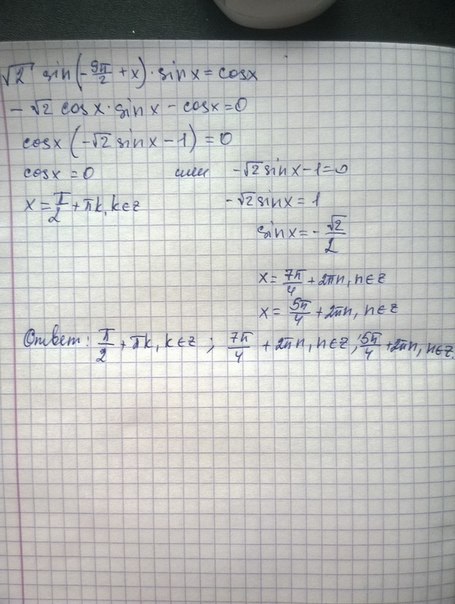 √2 sin(-9π/2 + x)·sinx = cosx
-√2 cosx·sinx - cosx=0
cosx(-√2 sinx - 1) = 0
cosx = 0 или -√2 sinx - 1=0
x = π/2 + πk, k∈z -√2 sinx = 1
sinx = -√2/2
x = 7π/4 + 2πn, n∈z
x = 5π/4 + 2πn, n∈z
Ответ: π/2 + πk, k∈z ; 7π/4 + 2πn, n∈z ; 5π/4 + 2πn, n∈z.